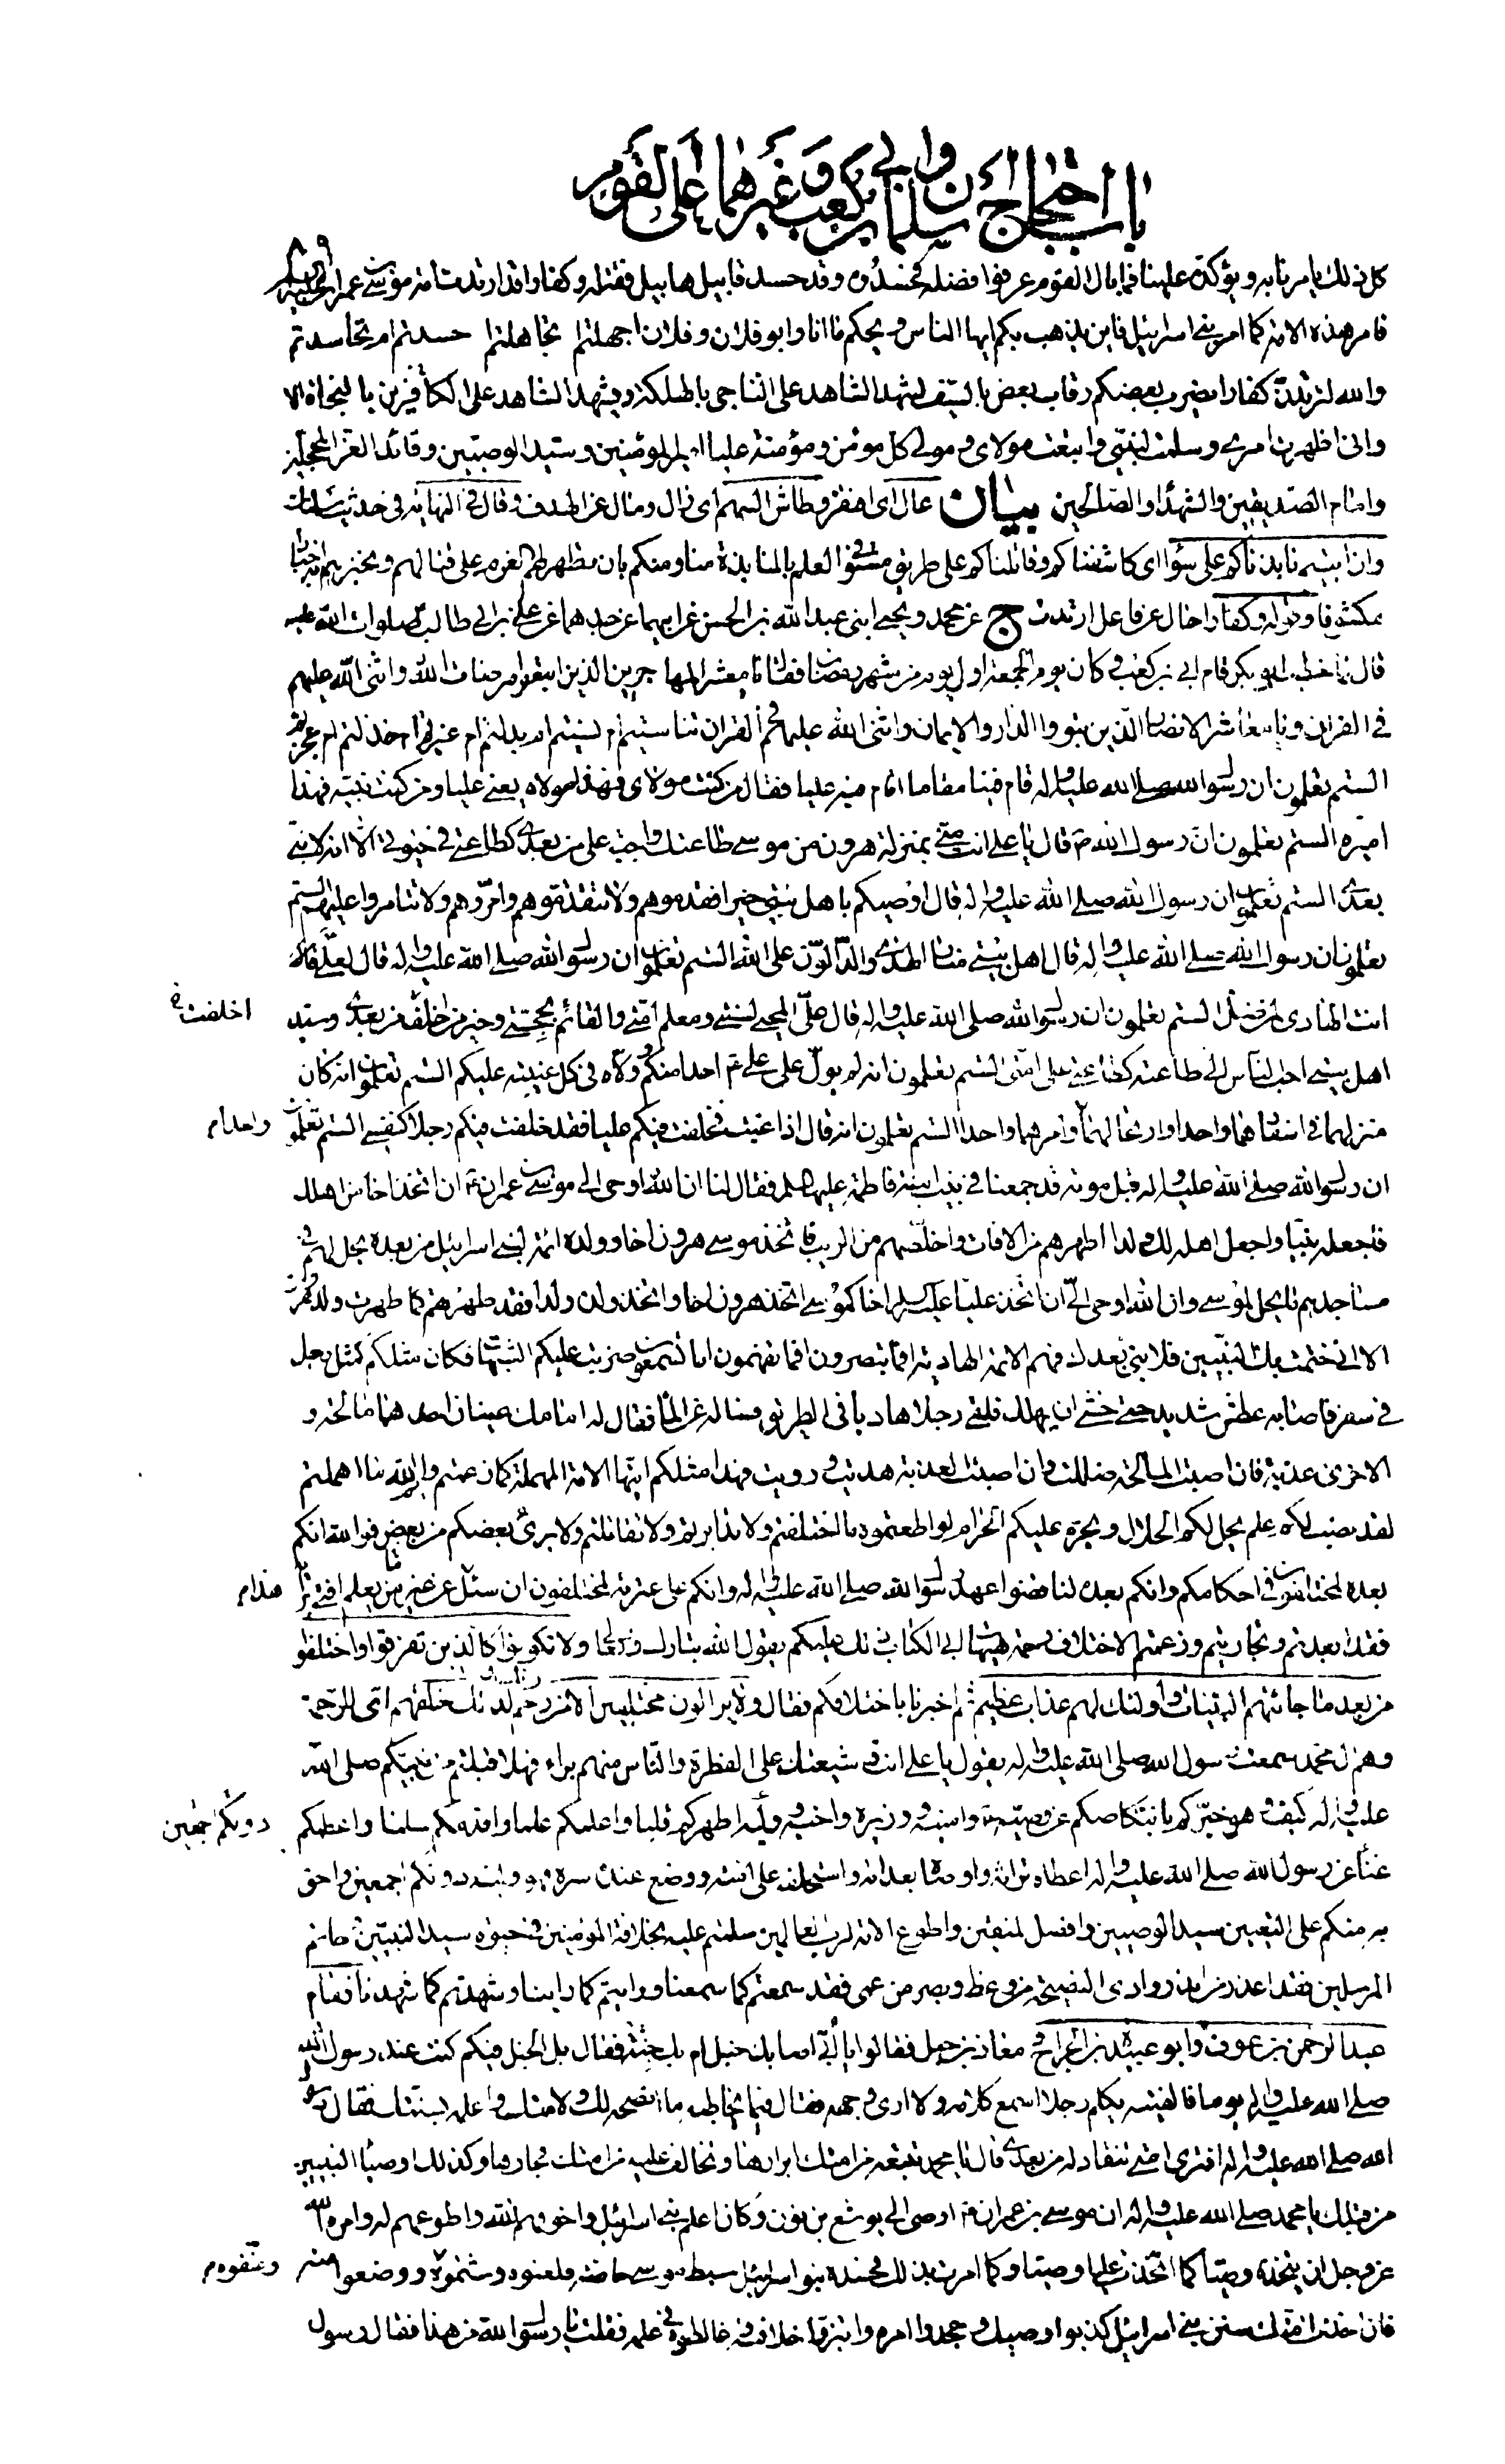 باب احتجاج سلمان وابي بن كعب وغيرهما على القوم
٨٩
كل ذلك يامرنا به ويؤكده علينا فما بال القوم عرفوا فضله فحسدوه وقد حسد قابيل هابيل فقتله وكفارا قد ارتدت امة موسى بن عمران
فامر هذه الامة كامر بني اسرائيل فاين يذهب بكم ايها الناس ويحكم ما انا وابو فلان وفلان اجهلتم ام تجاهلتم ام حسدتم ام تحاسدتم
والله لترتدن كفارا يضرب بعضكم رقاب بعض بالسيف يشهد الشاهد على الناجي بالهلكة ويشهد الشاهد على الكافرين بالنجاة الا
واني اظهرت امري وسلمت لنبيي واتبعت مولاي ومولى كل مؤمن ومؤمنة عليا امير المؤمنين وسيد الوصيين وقائد الغر المحجلين
وامام الصديقين والشهداء والصالحين بيان عال اي افتقر وطاش السهم اي زال ومال عن الهدف وقال في النهاية في حديث سلمان
وان ابيتم نابذناكم على سواء اي كاشفناكم وقاتلناكم على طريق مستو في العلم بالمنابذة منا ومنكم بان نظهر لهم العزم على قتالهم ونخبرهم به اخبارا
مكشوفا وقوله وكفارا حال عن فاعل ارتدت ج عن محمد ويحيى ابني عبد الله بن الحسن عن ابيهما عن جدهما عن علي بن ابي طالب صلوات الله عليه
قال لما خطب ابو بكر قام ابي بن كعب وكان يوم الجمعة اول يوم من شهر رمضان فقال يا معشر المهاجرين الذين اتبعوا مرضات الله واثنى الله عليهم
في القران ويا معاشر الانصار الذين تبوؤا الدار والايمان واثنى الله عليهم في القران تناسيتم ام نسيتم ام بدلتم ام غيرتم ام خذلتم ام عجزتم
الستم تعلمون ان رسول الله صلى الله عليه واله قام فينا مقاما اقام فيه عليا فقال من كنت مولاه فهذا مولاه يعني عليا ومن كنت نبيه فهذا
اميره الستم تعلمون ان رسول الله ص قال يا علي انت مني بمنزلة هرون من موسى طاعتك واجبة على من بعدي كطاعتي في حيوتي الا انه لا نبي
بعدي الستم تعلمون ان رسول الله صلى الله عليه واله قال اوصيكم باهل بيتي خيرا فقدموهم ولا تتقدموهم وامروهم ولا تتامروا عليهم الستم
تعلمون ان رسول الله صلى الله عليه واله قال اهل بيتي منار الهدى والدالون على الله الستم تعلمون ان رسول الله صلى الله عليه واله قال لعلي
انت الهادي لمن ضل الستم تعلمون ان رسول الله صلى الله عليه واله قال علي المحيي لسنتي ومعلم امتي والقائم بحجتي وخير من اخلف من بعدي وسيد
اخلفت خ
اهل بيتي احب الناس الي طاعته كطاعتي على امتي الستم تعلمون انه لم يول على علي ع احدا منكم وولاه في كل غيبته عليكم الستم تعلمون انه كان
منزلهما في اسفارهما واحدا وارتحالهما وامرهما واحدا الستم تعلمون انه قال اذا غبت فخلفت فيكم عليا فقد خلفت فيكم رجلا كنفسي الستم تعلمون
واحدا م
ان رسول الله صلى الله عليه واله قبل موته قد جمعنا في بيت ابنته فاطمة عليها السلام فقال لنا ان الله اوحى الى موسى بن عمران ع ان اتخذ اخا من اهلك
فتجعله نبيا واجعل اهله لك ولدا اطهرهم من الافات واخلصهم من الريب فاتخذ موسى هرون اخا وولده ائمة لبني اسرائيل من بعده يحل لهم في
مساجدهم ما يحل لموسى وان الله اوحى الي ان اتخذ عليا اخا كموسى اتخذ هرون اخا واتخذ ولده ولدا فقد طهرتهم كما طهرت ولد هرون
الا اني ختمت بك النبيين فلا نبي بعدك فهم الائمة الهادية افما تبصرون افما تفهمون اما تسمعون ضربت عليكم الشبهات فكان مثلكم كمثل رجل
في سفر فاصابه عطش شديد حتى خشي ان يهلك فلقي رجلا هاديا في الطريق فساله عن الماء فقال له امامك عينان احدهما مالحة و
الاخرى عذبة فان اصبت المالحة ضللت وان اصبت العذبة هديت ورويت فهذا مثلكم ايتها الامة المهملة كما زعمتم وايم الله ما اهملتم
لقد نصب لكم علم يحل لكم الحلال ويحرم عليكم الحرام لو اطعتموه ما اختلفتم ولا تدابرتم ولا تقاتلتم ولا برئ بعضكم من بعض فوالله انكم
بعده لمختلفون في احكامكم وانكم بعده لناقضوا عهد رسول الله صلى الله عليه واله وانكم على عترته لمختلفون ان سئل هذا عن غير من يعلم افتى برأيه
هذا م
فقد ابعدتم وتجاريتم وزعمتم الاختلاف رحمة هيهات ابى الكتاب ذلك عليكم يقول الله تبارك وتعالى ولا تكونوا كالذين تفرقوا واختلفوا
من بعد ما جائتهم البينات واولئك لهم عذاب عظيم ثم اخبرنا باختلافكم فقال ولا يزالون مختلفين الا من رحم ربك ولذلك خلقهم اي للرحمة
وهم ال محمد سمعت رسول الله صلى الله عليه واله يقول يا علي انت وشيعتك على الفطرة والناس منهم براء فهلا قبلتم من نبيكم صلى الله
عليه واله كيف وهو خبركم بانتكاصكم عن وصيه وامينه ووزيره واخيه ووليه اطهركم قلبا واعلمكم علما واقدمكم سلما واعظمكم
دونكم اجمعين
غناء عن رسول الله صلى الله عليه واله اعطاه تراثه واوصاه بعداته واستخلفه على امته ووضع عنده سره فهو وليه دونكم اجمعين واحق
به منكم على التعيين سيد الوصيين وافضل المتقين واطوع الامة لرب العالمين سلمتم عليه بخلافة المؤمنين في حيوة سيد النبيين وخاتم
المرسلين فقد اعذر من انذر وادى النصيحة من وعظ وبصر من عمى فقد سمعتم كما سمعنا ورايتم كما راينا وشهدتم كما شهدنا فقام
عبد الرحمن بن عوف وابو عبيدة بن الجراح ومعاذ بن جبل فقالوا يا ابي اصابك خبل ام بك جنة فقال بل الخبل فيكم كنت عند رسول الله
صلى الله عليه واله يوما فالفيته يكلم رجلا اسمع كلامه ولا ارى وجهه فقال فيما يخاطبه ما انصحه لك ولامتك واعلمه بسنتك فقال رسول
الله صلى الله عليه واله افترى امتي تنقاد له من بعدي قال يا محمد تتبعه من امتك ابرارها وتخالف عليه من امتك فجارها وكذلك اوصياء النبيين
من قبلك يا محمد صلى الله عليه واله ان موسى بن عمران ع اوصى الى يوشع بن نون وكان اعلم بني اسرائيل واخوفهم لله واطوعهم له وامره الله
عز وجل ان يتخذه وصيا كما اتخذت عليا وصيا وكما امرت بذلك فحسده بنو اسرائيل سبط موسى خاصة فلعنوه وشتموه ووضعوا منه
وعنفوه م
فان اخذت امتك سنن بني اسرائيل كذبوا وصيك وجحدوا امره وابتزوا خلافته وغالطوه في علمه فقلت يا رسول الله من هذا فقال رسول